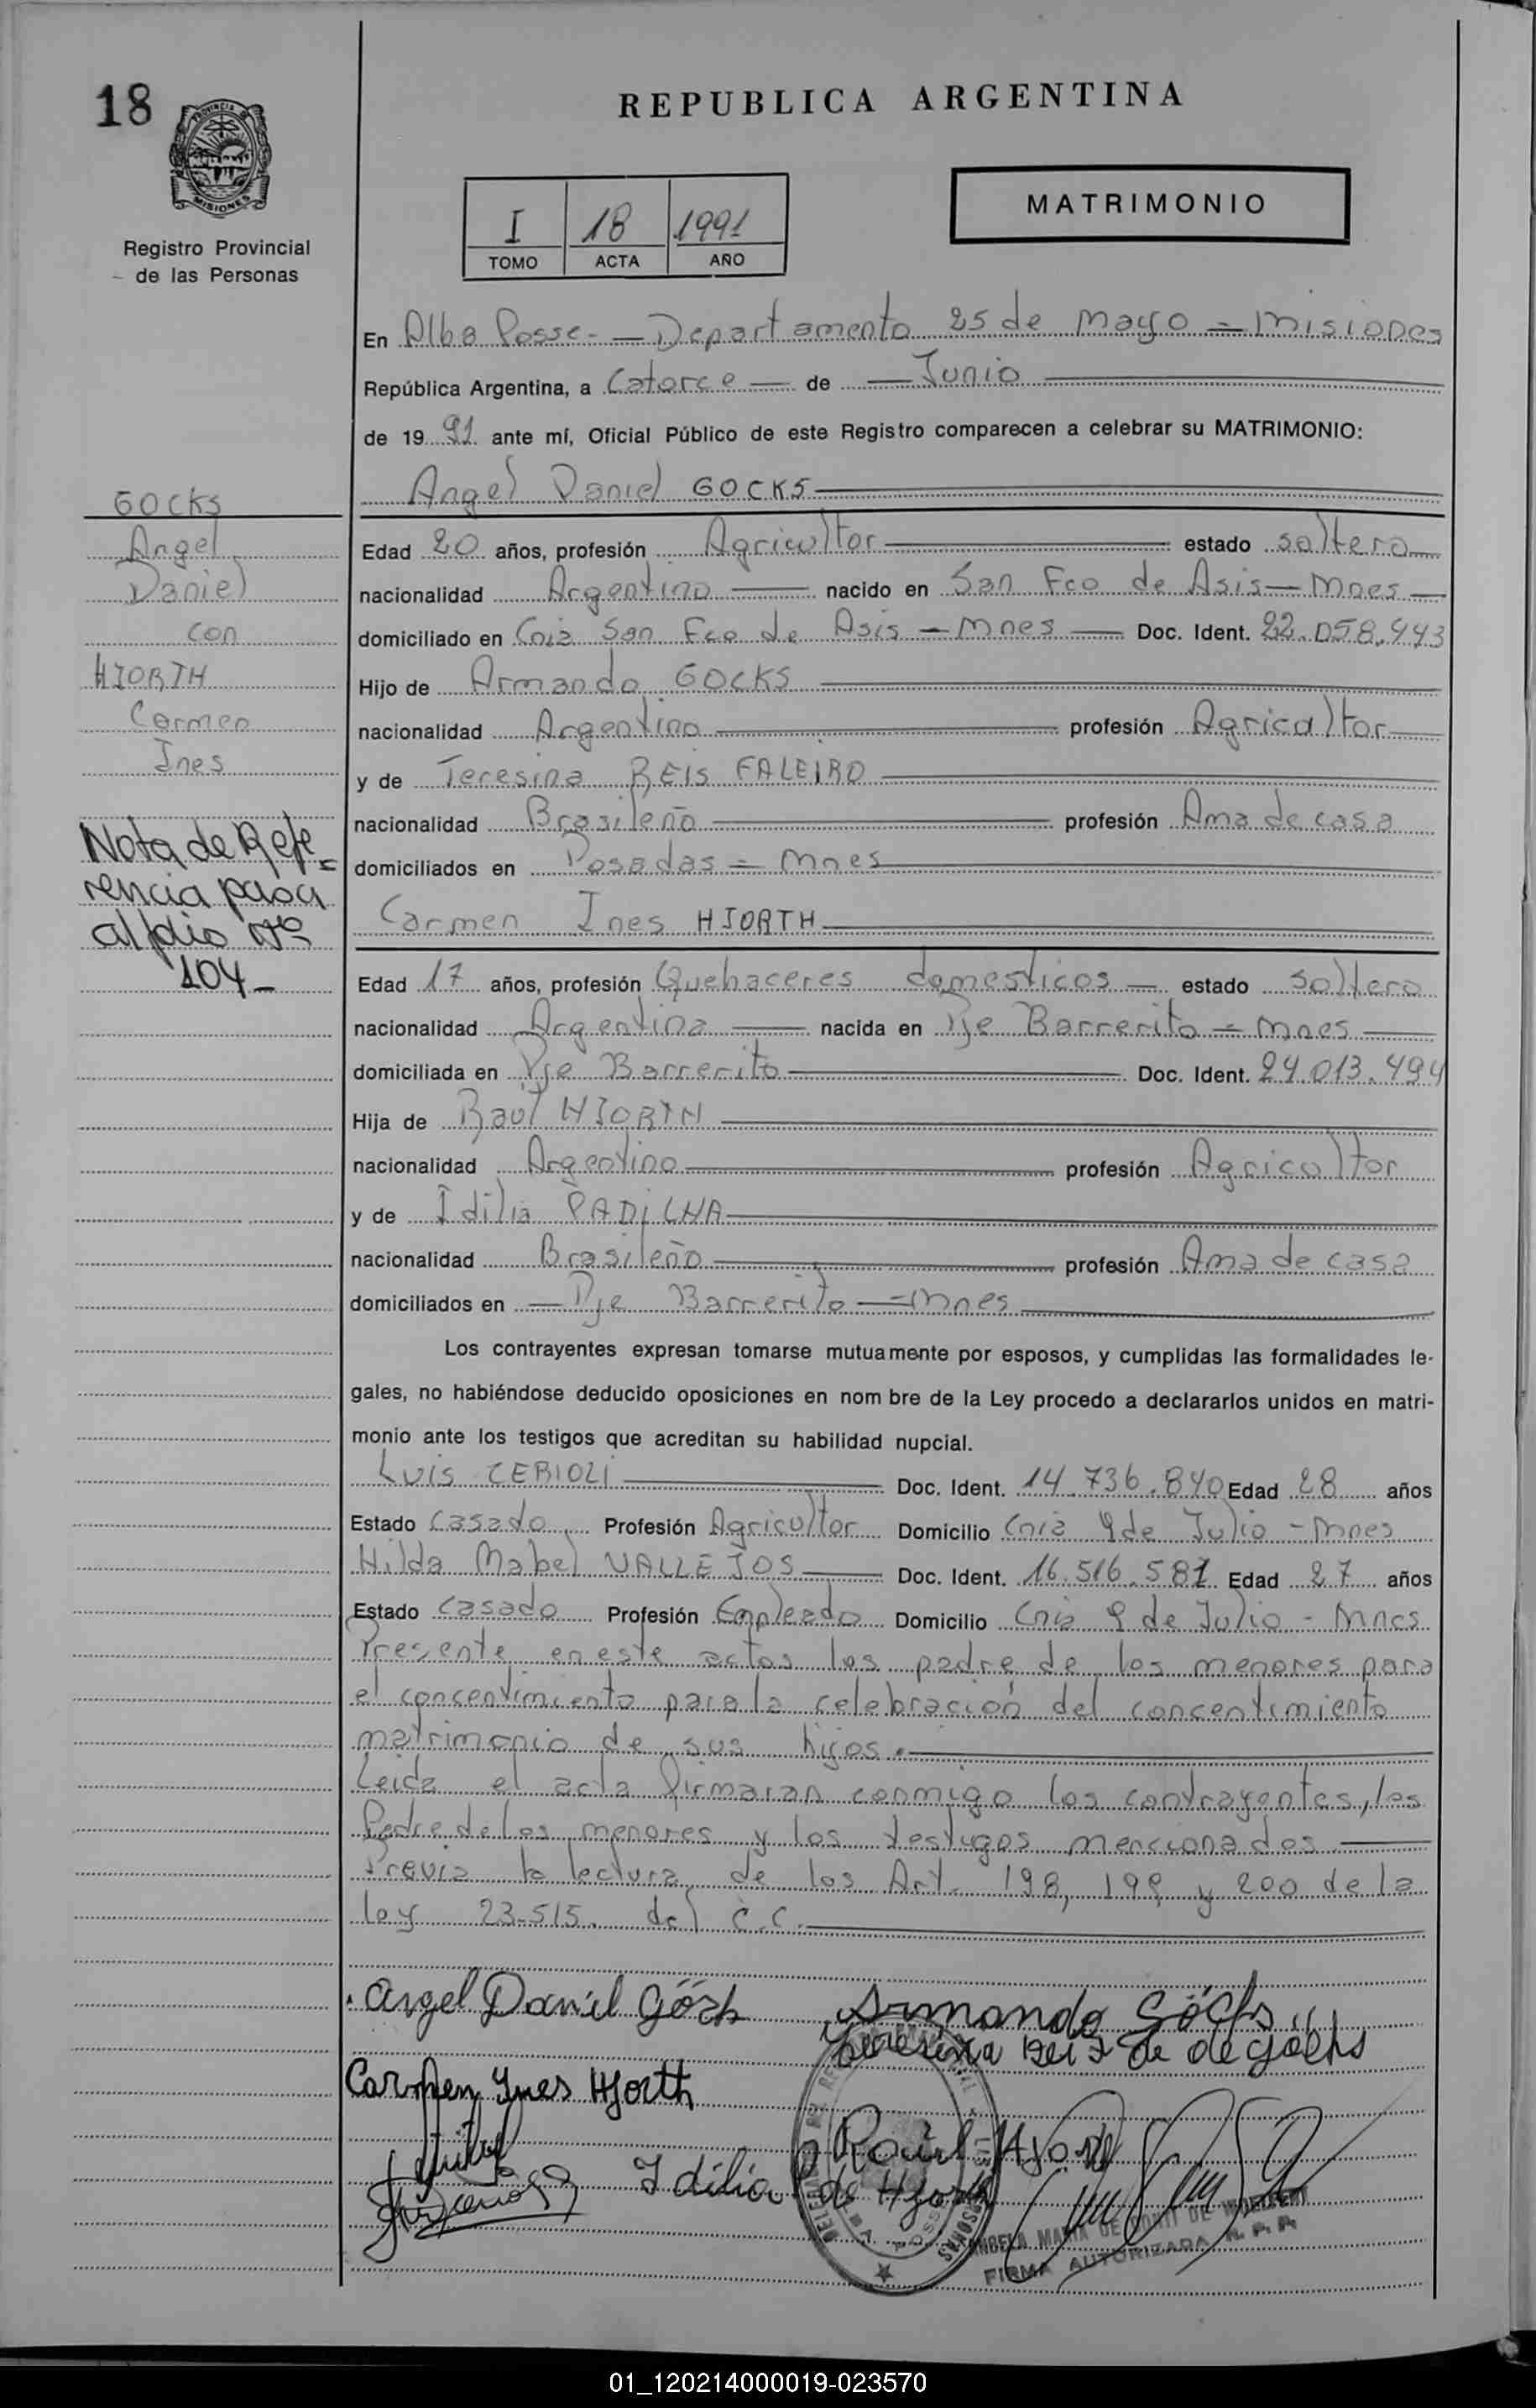 18
REPUBLICA ARGENTINA
PROVINCIA DE MISIONES
Registro Provincial
de las Personas
I 18 1991
TOMO ACTA AÑO
MATRIMONIO
En Alba Posse - Departamento 25 de Mayo = Misiones
República Argentina, a Catorce de Junio
de 1991 ante mí, Oficial Público de este Registro comparecen a celebrar su MATRIMONIO:
Angel Daniel GOCKS
GOCKS
Angel
Daniel
con
HJORTH
Carmen
Ines
Nota de Refe=
rencia pasa
al folio Nº
104-
Edad 20 años, profesión Agricultor estado soltero
nacionalidad Argentino nacido en San Fco de Asis - Mnes
domiciliado en Cnia San Fco de Asis - Mnes Doc. Ident. 22.058.443
Hijo de Armando GOCKS
nacionalidad Argentino profesión Agricultor
y de Teresina REIS FALEIRO
nacionalidad Brasileño profesión Ama de casa
domiciliados en Posadas = Mnes
Carmen Ines HJORTH
Edad 17 años, profesión Quehaceres domesticos estado soltera
nacionalidad Argentina nacida en Pje Barrerito = Mnes
domiciliada en Pje Barrerito Doc. Ident. 24.013.494
Hija de Raul HJORTH
nacionalidad Argentino profesión Agricultor
y de Idilia PADILHA
nacionalidad Brasileño profesión Ama de casa
domiciliados en - Pje Barrerito = Mnes
Los contrayentes expresan tomarse mutuamente por esposos, y cumplidas las formalidades le-
gales, no habiéndose deducido oposiciones en nom bre de la Ley procedo a declararlos unidos en matri-
monio ante los testigos que acreditan su habilidad nupcial.
Luis CERIOLI Doc. Ident. 14.736.840 Edad 28 años
Estado Casado Profesión Agricultor Domicilio Cnia 9 de Julio - Mnes
Hilda Mabel VALLEJOS Doc. Ident. 16.516.581 Edad 27 años
Estado Casado Profesión Empleado Domicilio Cnia 9 de Julio - Mnes
Presente en este actos los padre de los menores para
el concentimiento para la celebración del concentimiento
matrimonio de sus hijos.
Leida el acta firmaran conmigo los contrayentes, los
Padre de los menores y los testigos mencionados
Previa la lectura de los Art. 198, 199 y 200 de la
ley 23.515. del C.C.
Angel Daniel Göck Armando Göcks
Teresina Reis de Göcks
Carmen Ines Hjorth
Raul Hjorth
Idilia de Hjorth
ANGELA MARIA DE CONTI DE
FIRMA AUTORIZADA R. P. P.
01_120214000019-023570